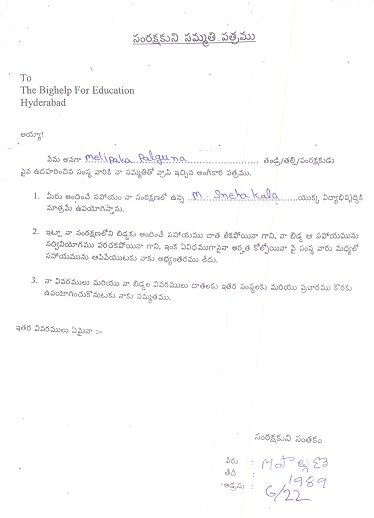 సంరక్షకుని సమ్మతి పత్రము
To
The Bighelp For Education
Hyderabad
అయ్యా!
నేను అనగా Melipaka Palguna తండ్రి/తల్లి/సంరక్షకుడు
పైన ఉదహరించిన సంస్థ వారికి నా సమ్మతితో వ్రాసి ఇచ్చిన అంగీకార పత్రము.
1. మీరు అందించే సహాయం నా సంరక్షణలో ఉన్న M Sneha Kala యొక్క విద్యాభివృద్ధికి
మాత్రమే ఉపయోగిస్తాను.
2. ఇట్లా నా సంరక్షణలోని బిడ్డకు అందించే సహాయము దాత లేకపోయినా గాని, నా బిడ్డ ఆ సహాయమును
సద్వినియోగము పరచకపోయినా గాని, ఇంక ఏవిధముగానైనా అర్హత కోల్పోయినా పై సంస్థ వారు మధ్యలో
సహాయమును ఆపివేయుటకు నాకు అభ్యంతరము లేదు.
3. నా వివరములు మరియు నా బిడ్డల వివరములు దాతలకు ఇతర సంస్థలకు మరియు ప్రచారము కొరకు
ఉపయోగించుకొనుటకు నాకు సమ్మతము.
ఇతర వివరములు ఏమైనా :-
సంరక్షకుని సంతకం
పేరు :
తేది : 1989
చిరునామా : 6/22